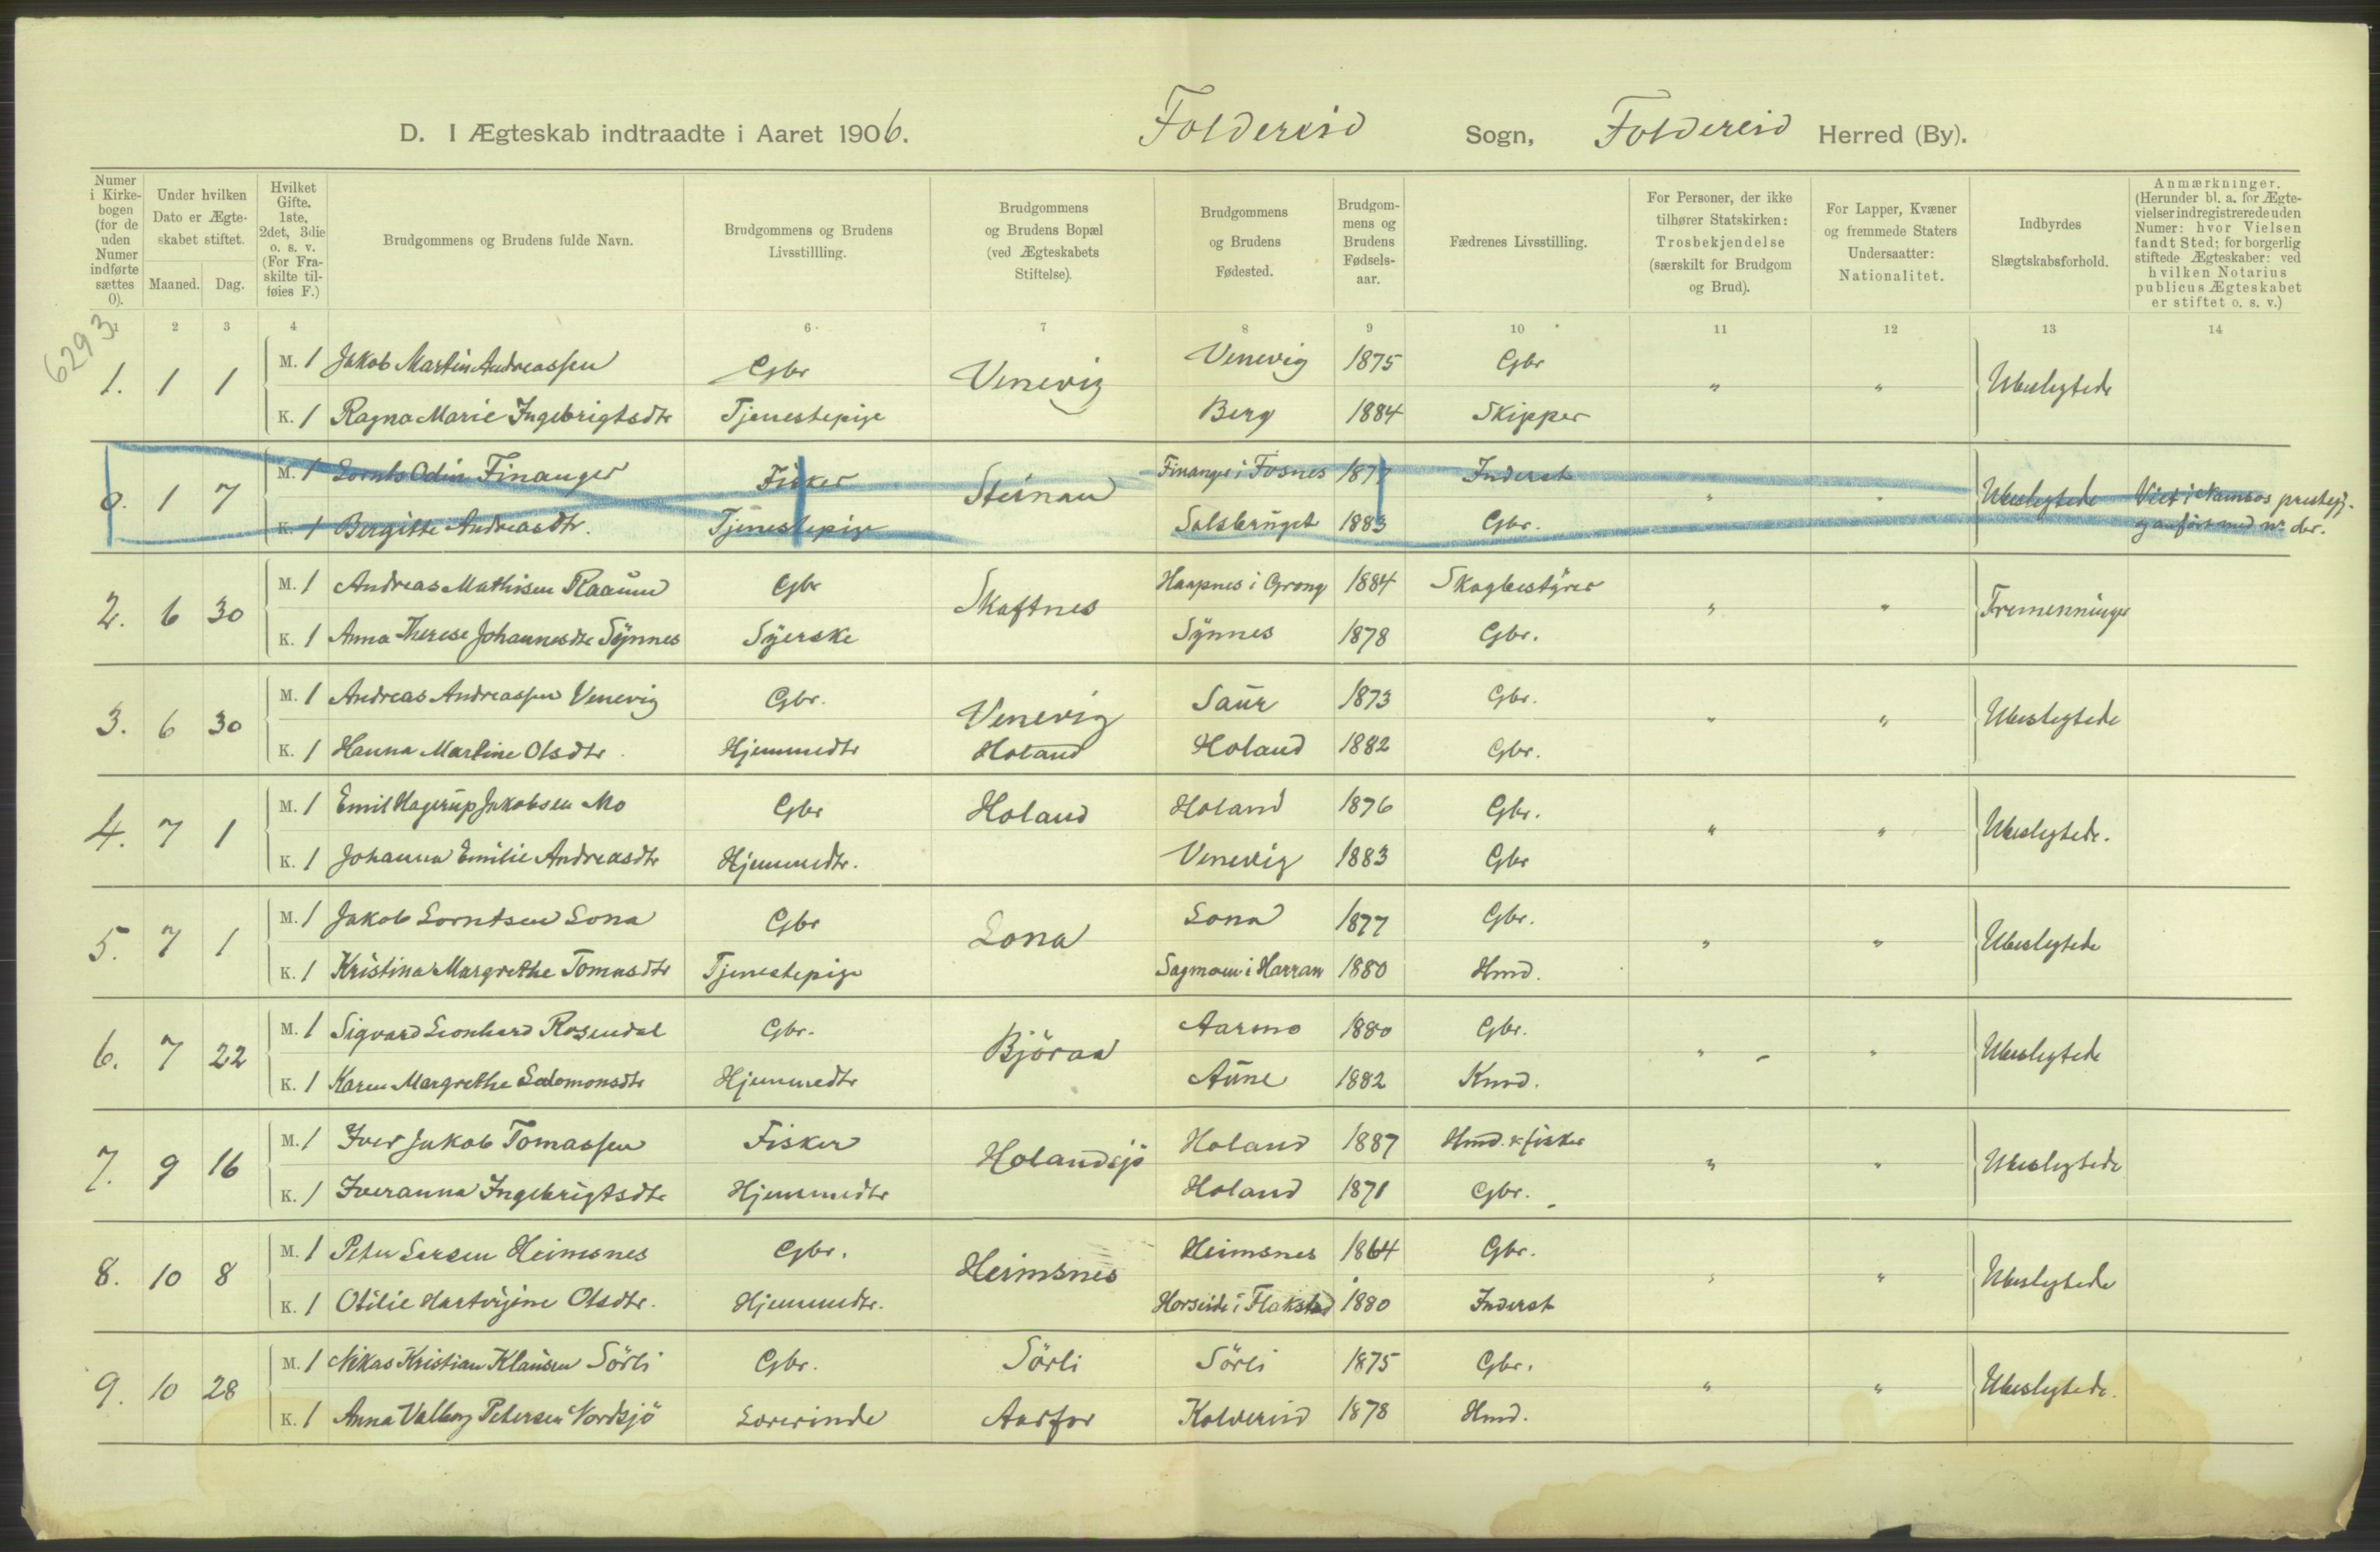 D. I Ægteskab indtraadte i Aaret 1906. Foldereid Sogn, Foldereid Herred (By).
Numer i Kirkebogen (for de uden Numer indførte sættes 0).
Under hvilken Dato er Ægteskabet stiftet.
Maaned. Dag.
Hvilket Gifte. 1ste, 2det, 3die o. s. v. (For Fraskilte tilføies F.)
Brudgommens og Brudens fulde Navn.
Brudgommens og Brudens Livsstillling.
Brudgommens og Brudens Bopæl (ved Ægteskabets Stiftelse).
Brudgommens og Brudens Fødested.
Brudgommens og Brudens Fødselsaar.
Fædrenes Livsstilling.
For Personer, der ikke tilhører Statskirken: Trosbekjendelse (særskilt for Brudgom og Brud).
For Lapper, Kvæner og fremmede Staters Undersaatter: Nationalitet.
Indbyrdes Slægtskabsforhold.
Anmærkninger. (Herunder bl. a. for Ægtevielser indregistrerede uden Numer: hvor Vielsen fandt Sted; for borgerlig stiftede Ægteskaber: ved hvilken Notarius publicus Ægteskabet er stiftet o. s. v.)
6293
1 2 3 4 6 7 8 9 10 11 12 13 14
M. 1 Jakob Martin Andreassen Gbr Venevig 1875 Gbr
1. 1 1 Venevig " " Ubeslegtede
K. 1 Ragna Marie Ingebrigtsdtr Tjenestepige Berg 1884 Skipper
M. 1 Lornts Odin Finanger Fisker Finanger i Fosnes 1877 Inderst
0. 1 7 Steinan " " Ubeslegtede Viet i Namsos prestegj.
K. 1 Bergitte Andreasdtr. Tjenestepige Salsbruget 1883 Gbr. og anført med nr der.
M. 1 Andreas Mathisen Raaum Gbr i Grong 1884 Skogbestyrer
2. 6 30 Skaftnes " " Tremenninger
K. 1 Anna Therese Johannesdtr Synnes Syerske Synnes 1878 Gbr.
M. 1 Andreas Andreassen Venevig Gbr. Venevig Saur 1873 Gbr.
3. 6 30 " " Ubeslegtede
K. 1 Hanna Martine Olsdtr Hjemmedtr Holand Holand 1882 Gbr.
M. 1 Emil Hagerup Jakobsen Mo Gbr Holand Holand 1876 Gbr.
4. 7 1 " " Ubeslegtede.
K. 1 Johanna Emilie Andreasdtr Hjemmedtr. Venevig 1883 Gbr
M. 1 Jakob Lorntsen Lona Gbr Lona 1877 Gbr.
5. 7 1 Lona " " Ubeslegtede
K. 1 Kristina Margrethe Tomasdtr Tjenestepige Sagmoen i Harran 1880 Hmd.
M. 1 Sigvard Leonhard Rosendal Gbr. Aarmo 1880 Gbr.
6. 7 22 Björaa " " Ubeslegtede
K. 1 Karen Margrethe Salomonsdtr Hjemmedtr Aune 1882 Kmd.
M. 1 Iver Jakob Tomassen Fisker Holand 1887 Hmd. & fisker
7. 9 16 Holandsjö " " Ubeslegtede
K. 1 Iveranna Ingebrigtsdtr Hjemmedtr Holand 1871 Gbr.
M. 1 Peter Larsen Heimsnes Gbr. Heimsnes 1864 Gbr.
8. 10 8 Heimsnes " " Ubeslegtede
K. 1 Otilie Hartvigine Olsdtr. Hjemmedtr. i Flakstad 1880 Inderst
M. 1 Nikas Kristian Klausen Sörli Gbr. Sörli Sörli 1875 Gbr.
9. 10 28 " " Ubeslegtede.
K. 1 Anna Valborg Petersen Nordsjö Lærerinde Aarfor Kolvereid 1878 Hmd.